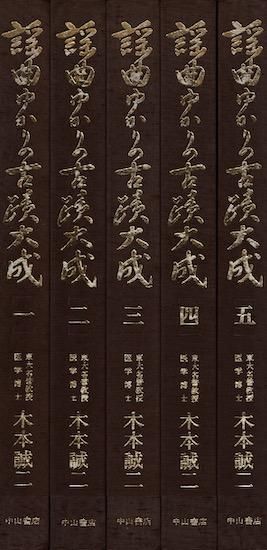 謡曲ゆかりの古蹟大成
一
東大名誉教授
医学博士
木本誠二
中山書店
謡曲ゆかりの古蹟大成
二
東大名誉教授
医学博士
木本誠二
中山書店
謡曲ゆかりの古蹟大成
三
東大名誉教授
医学博士
木本誠二
中山書店
謡曲ゆかりの古蹟大成
四
東大名誉教授
医学博士
木本誠二
中山書店
謡曲ゆかりの古蹟大成
五
東大名誉教授
医学博士
木本誠二
中山書店